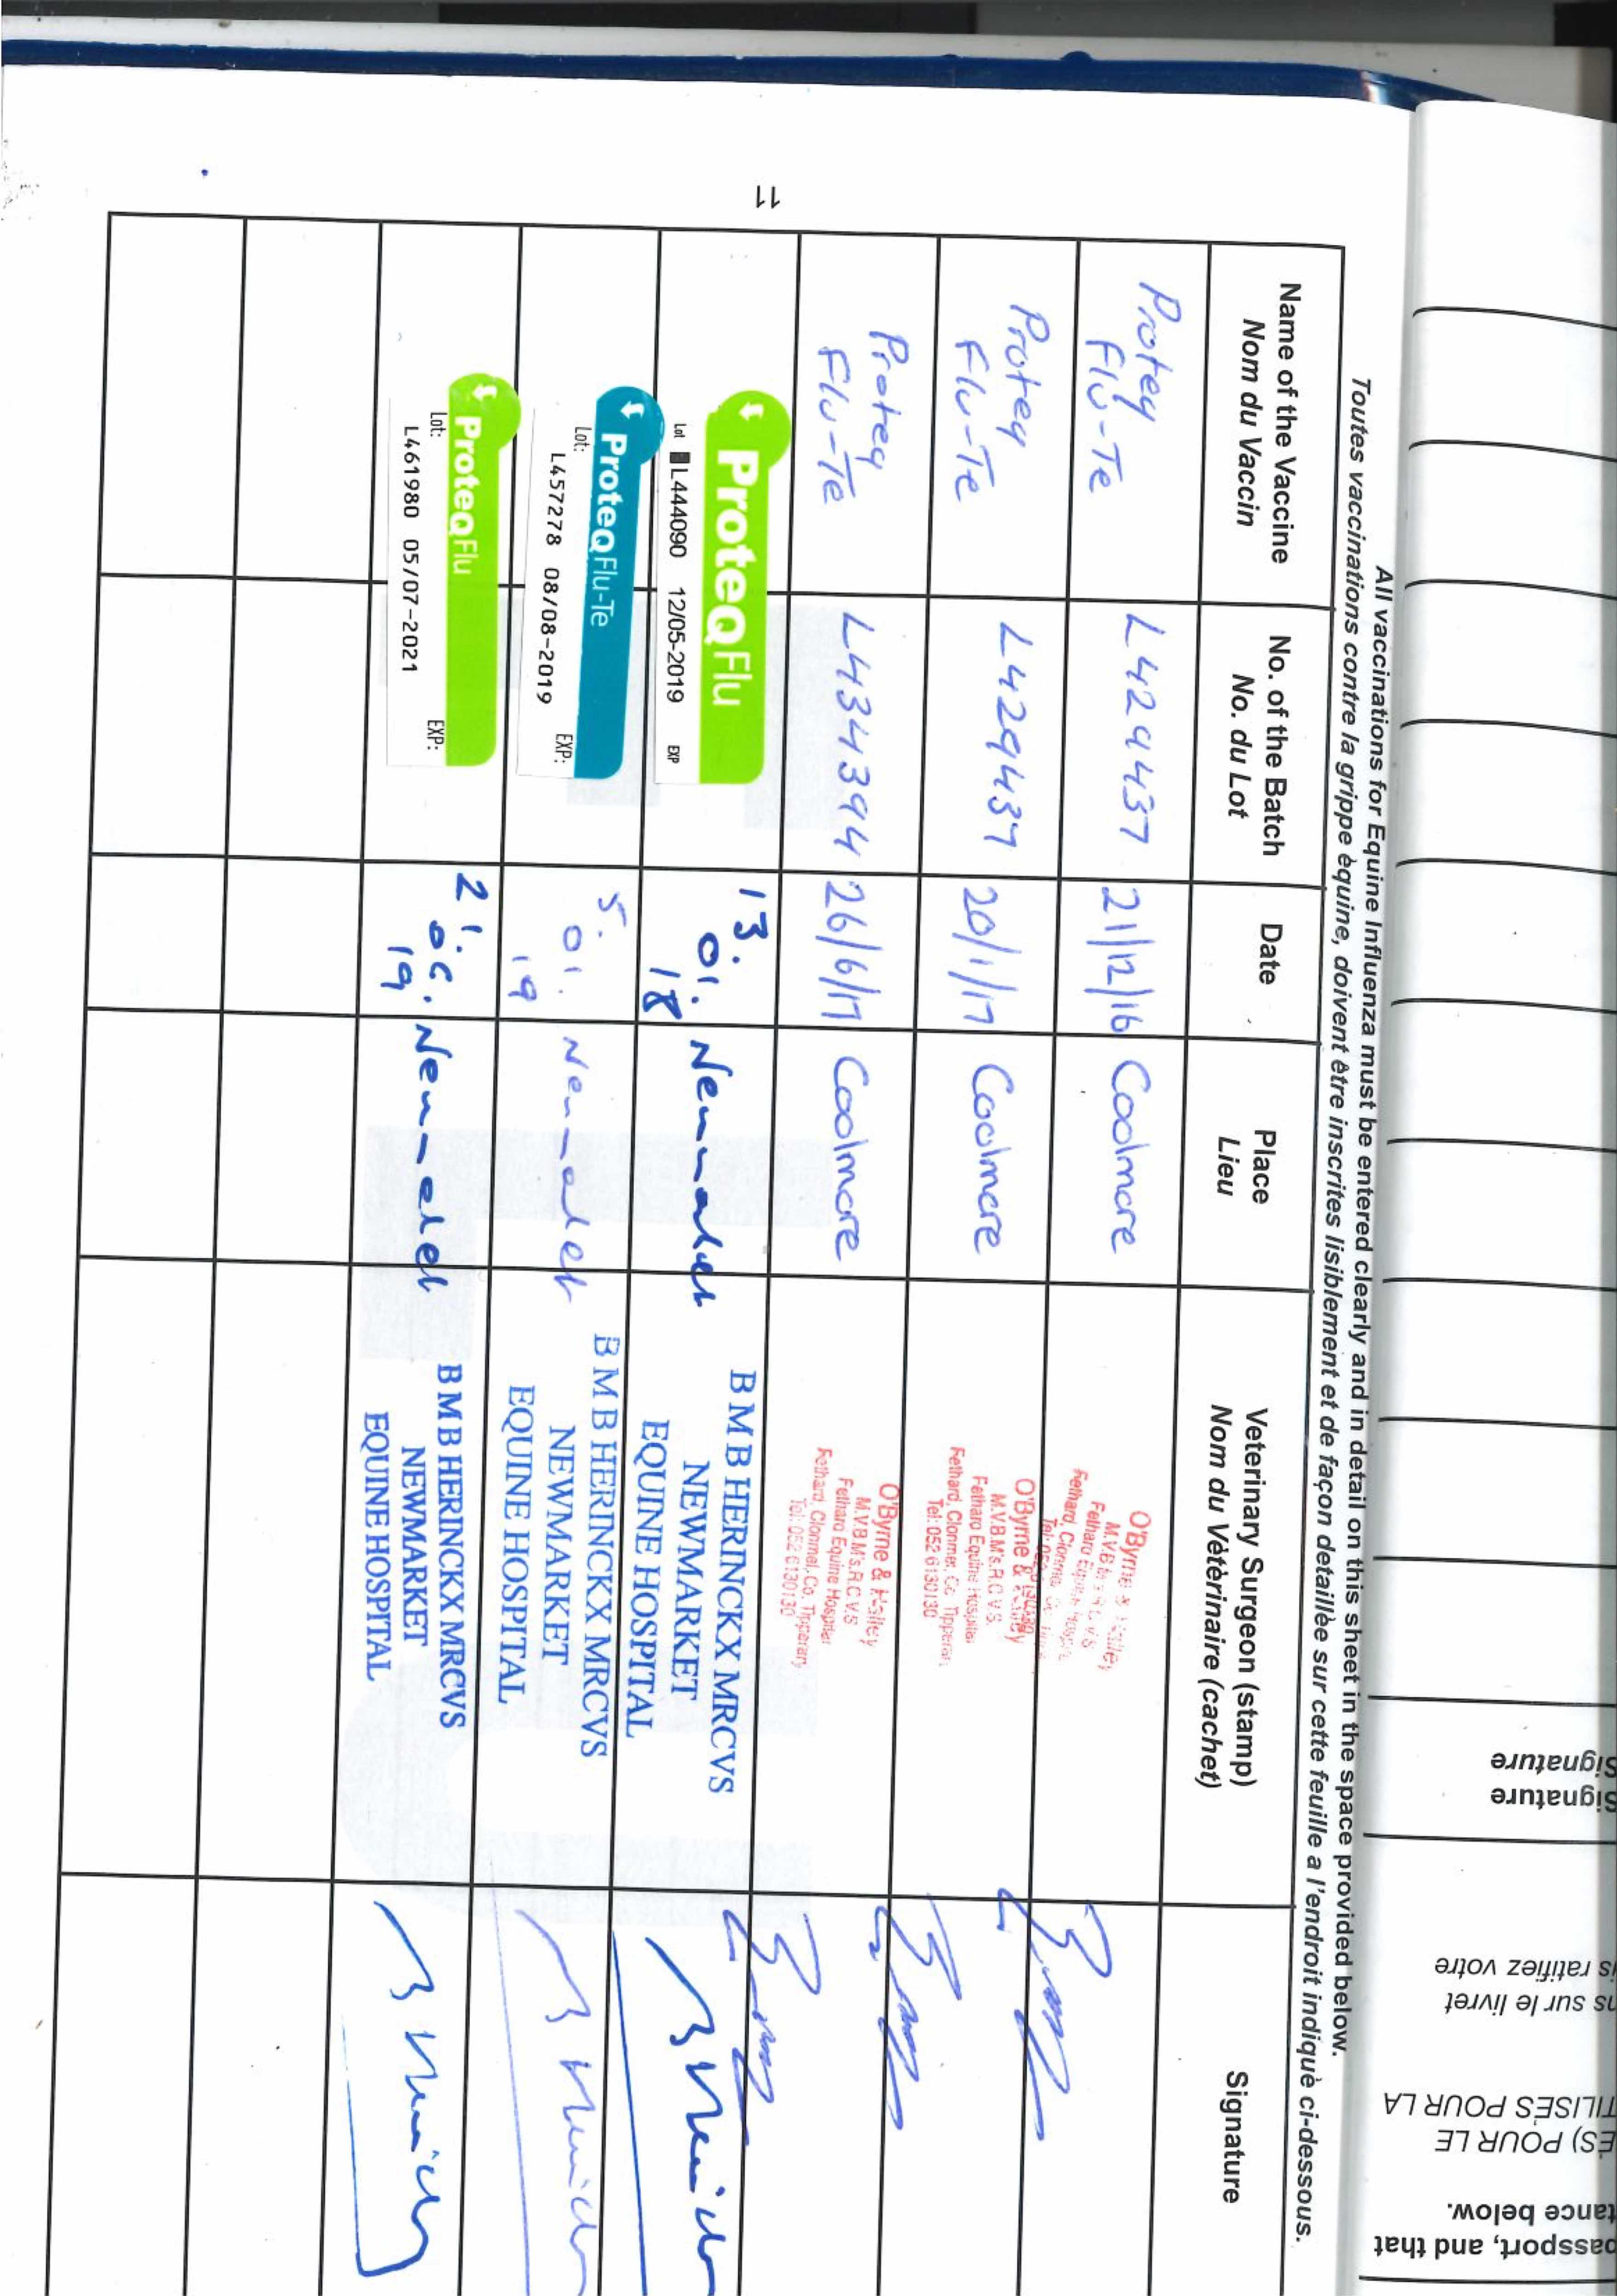 All vaccinations for Equine Influenza must be entered clearly and in detail on this sheet in the space provided below.
Toutes vaccinations contre la grippe èquine, doivent être inscrites lisiblement et de façon detaillèe sur cette feuille a l'endroit indiquè ci-dessous.
Name of the Vaccine
Nom du Vaccin
No. of the Batch
No. du Lot
Date
Place
Lieu
Veterinary Surgeon (stamp)
Nom du Vètèrinaire (cachet)
Signature
Proteq
Flu-Te
L429437
21/12/16
Coolmore
O'Byrne &
Fethard
Proteq
Flu-Te
L429437
20/1/17
Coolmore
O'Byrne &
M.V.B M's.R.C.V.S.
Fethard Equine Hospital
Fethard, Clonmel, Co. Tipperary
Tel: 052 6130130
Proteq
Flu-Te
L434394
26/6/17
Coolmore
O'Byrne & Halley
M.V.B M's.R.C.V.S
Fethard Equine Hospital
Fethard, Clonmel, Co. Tipperary
Tel: 052 6130130
ProteQ Flu
Lot L444090 12/05-2019 EXP
13.
01.
18
Newmarket
B M B HERINCKX MRCVS
NEWMARKET
EQUINE HOSPITAL
ProteQ Flu-Te
Lot: EXP:
L457278 08/08-2019
5.
01.
19
Newmarket
B M B HERINCKX MRCVS
NEWMARKET
EQUINE HOSPITAL
ProteQ Flu
Lot: EXP:
L461980 05/07-2021
21.
06.
19
Newmarket
B M B HERINCKX MRCVS
NEWMARKET
EQUINE HOSPITAL
11
Signature
Signature
ratifiez votre
sur le livret
POUR LA
POUR LE
below.
passport, and that